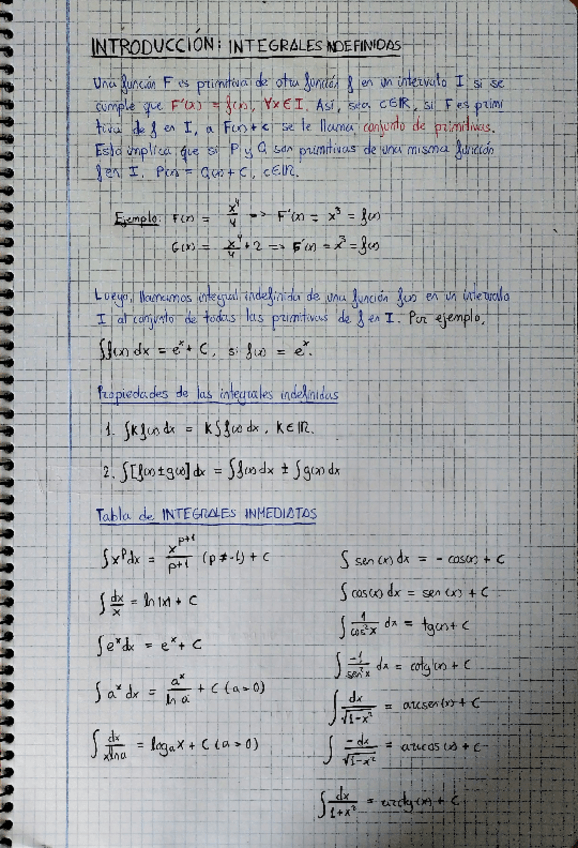 INTRODUCCIÓN: INTEGRALES INDEFINIDAS
Una función F es primitiva de otra función f en un intervalo I si se
cumple que F'(x) = f(x), ∀x∈I. Así, sea c∈ℝ, si F es primi
tiva de f en I, a F(x)+c se le llama conjunto de primitivas.
Esto implica que si P y Q son primitivas de una misma función
f en I, P(x) = Q(x) + C, c∈ℝ.
Ejemplo: F(x) = x⁴/4 => F'(x) = x³ = f(x)
G(x) = x⁴/4 + 2 => F'(x) = x³ = f(x)
Luego, llamamos integral indefinida de una función f(x) en un intervalo
I al conjunto de todas las primitivas de f en I. Por ejemplo,
∫f(x) dx = eˣ + C, si f(x) = eˣ.
Propiedades de las integrales indefinidas
1. ∫K f(x) dx = K∫f(x) dx, K∈ℝ.
2. ∫[f(x) ± g(x)] dx = ∫f(x) dx ± ∫g(x) dx
Tabla de INTEGRALES INMEDIATAS
∫xᵖ dx = xᵖ⁺¹/p+1 (p ≠ -1) + C
∫dx/x = ln|x| + C
∫eˣ dx = eˣ + C
∫aˣ dx = aˣ/ln a + C (a>0)
∫dx/x ln a = logₐ x + C (a>0)
∫sen(x) dx = -cos(x) + C
∫cos(x) dx = sen(x) + C
∫1/cos²x dx = tg(x) + C
∫-1/sen²x dx = cotg(x) + C
∫dx/√1-x² = arcsen(x) + C
∫-dx/√1-x² = arccos(x) + C
∫dx/1+x² = arctg(x) + C